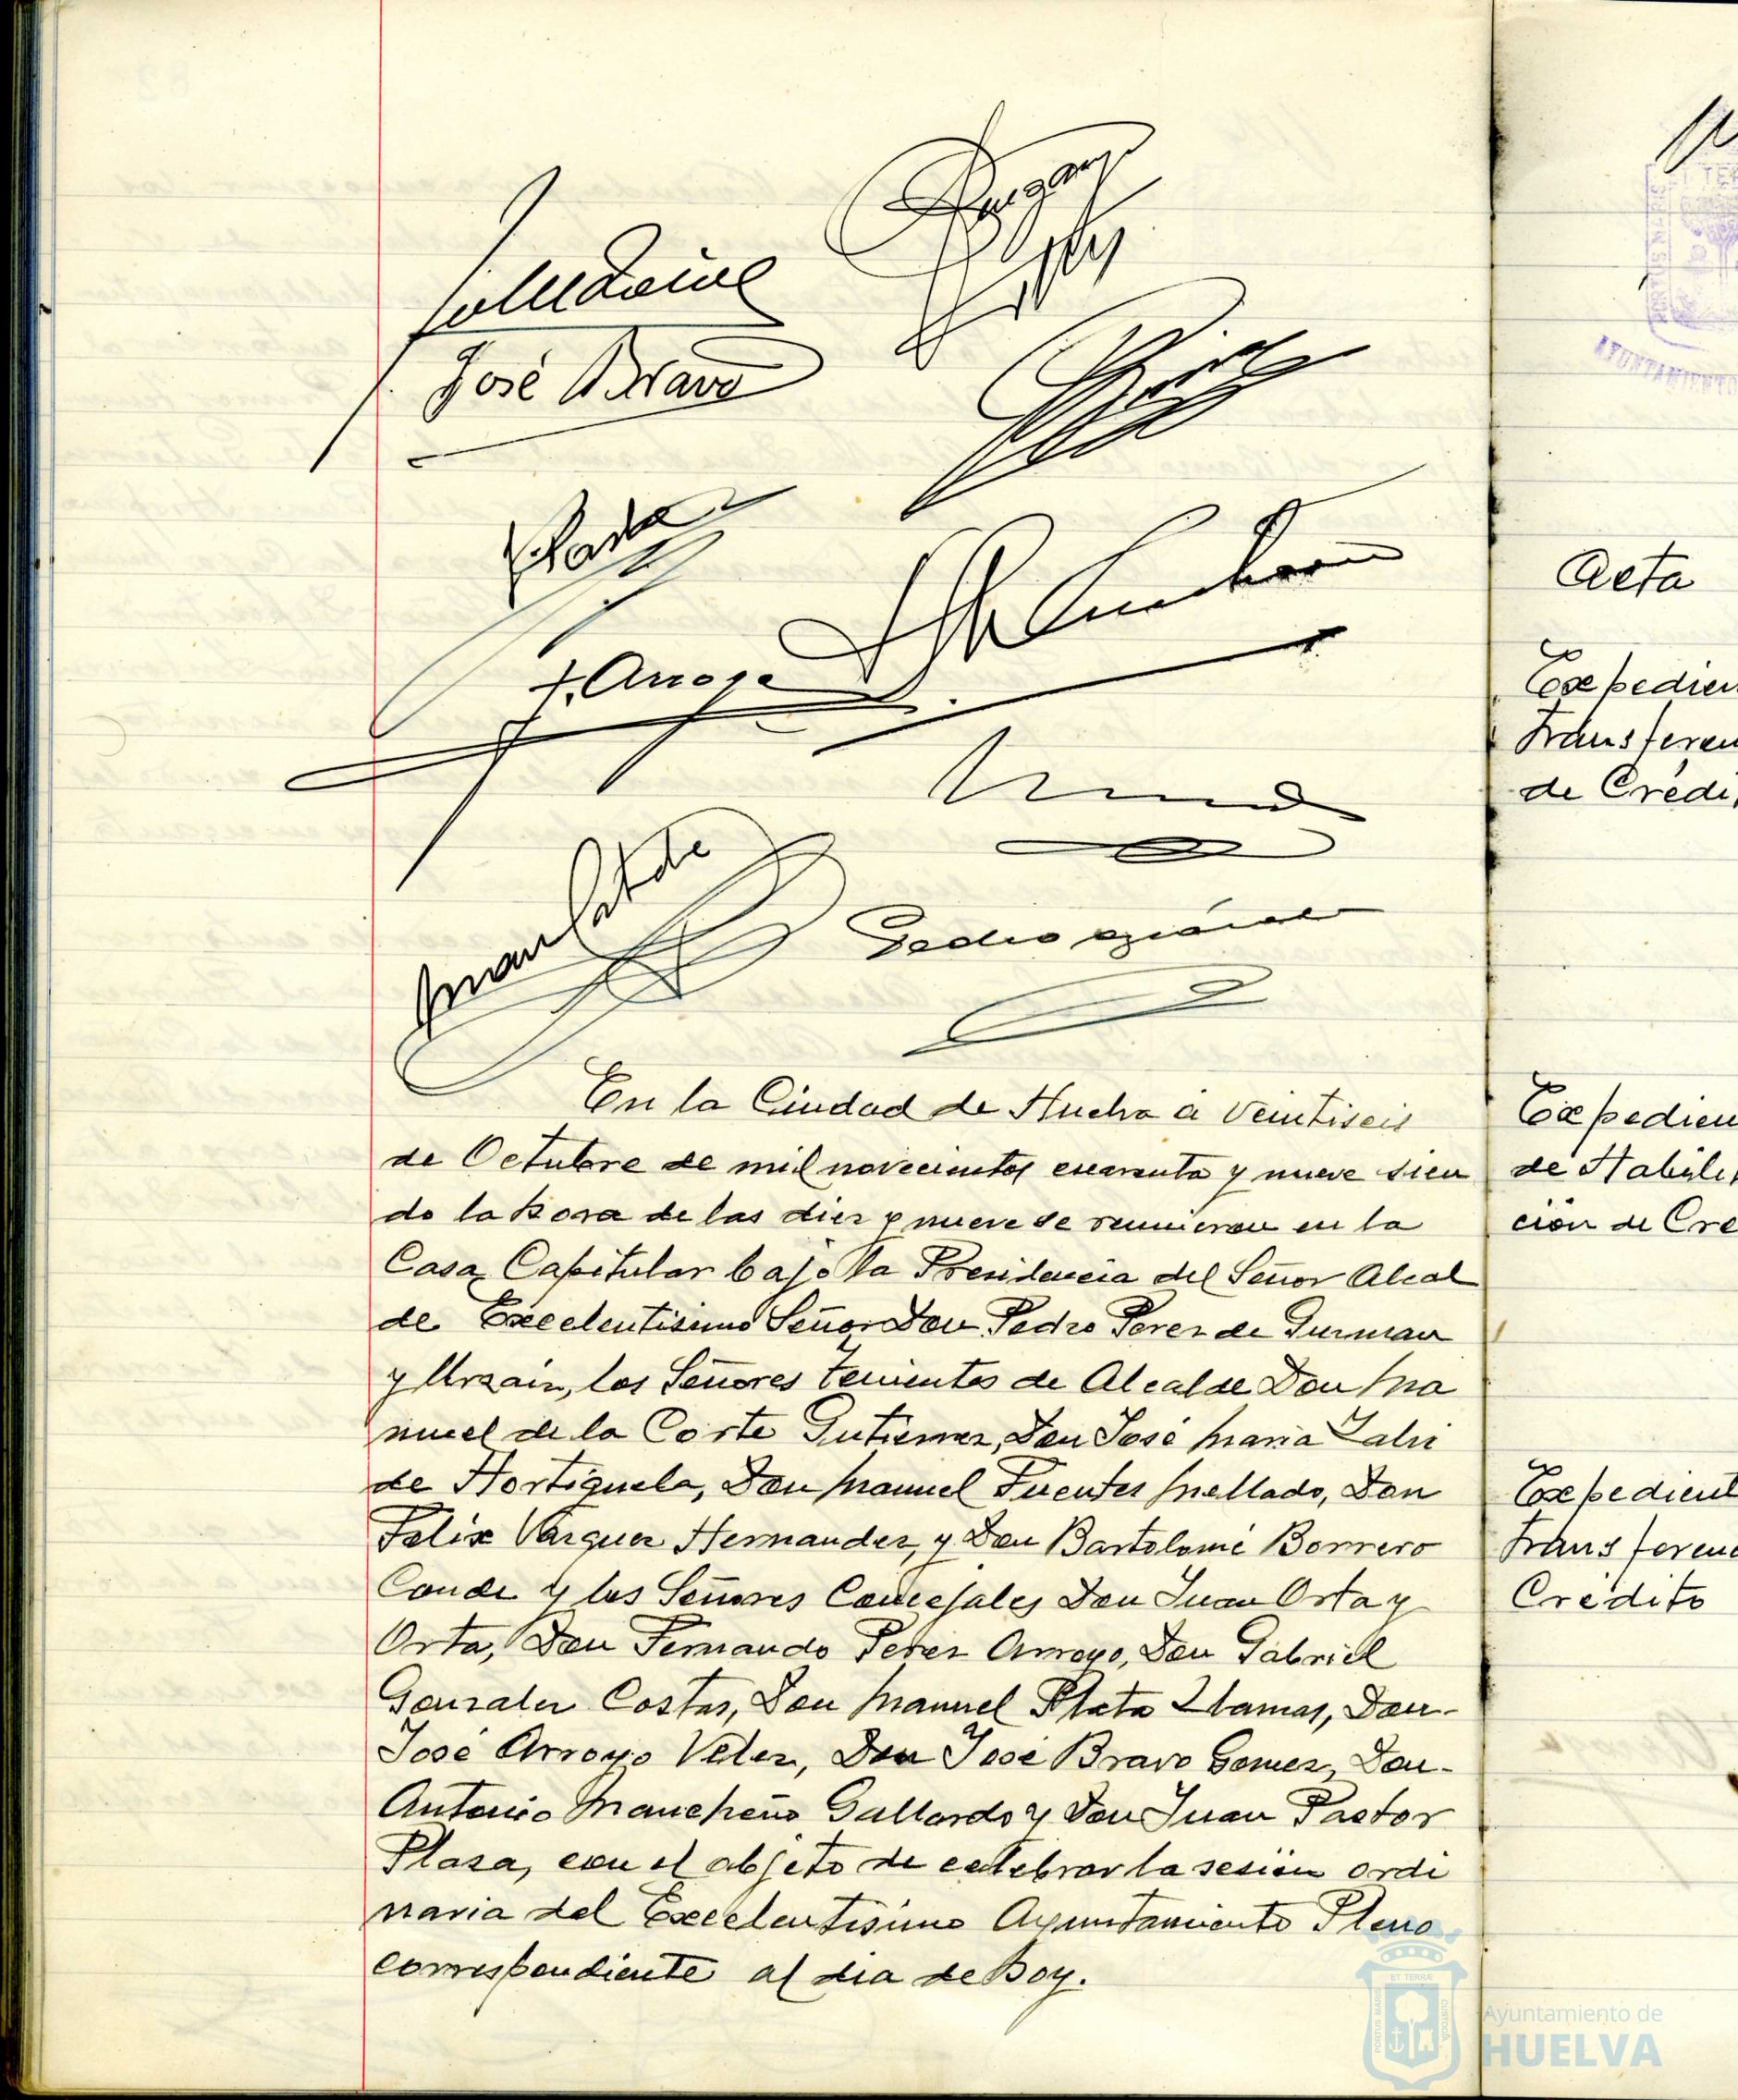 José Bravo
F. Arroyo
En la Ciudad de Huelva a veintiseis
de Octubre de mil novecientos cuarenta y nueve sien
do la hora de las diez y nueve se reunieron en la
Casa Capitular bajo la Presidencia del Señor Alcal
de Excelentisimo Señor Don Pedro Perez de Guzman
y Urzaiz, los Señores tenientes de Alcalde Don Ma
nuel de la Corte Gutierrez, Don José Maria
de Hortiguela, Don Manuel Fuentes Mellado, Don
Felix Vazquez Hernandez, y Don Bartolomé Borrero
Conde y los Señores Concejales Don Juan Orta y
Orta, Don Fernando Perez Arroyo, Don Gabriel
Gonzalez Costas, Don Manuel Plata Llamas, Don
José Arroyo Velez, Don José Bravo Gomez, Don
Antonio Mancheño Gallardo y Don Juan Pastor
Plaza, con el objeto de celebrar la sesión ordi
naria del Excelentisimo Ayuntamiento Pleno
correspondiente al dia de hoy.
Acta
Expedien
transferen
de Credi
Expedien
de Habili
ción de Cre
Expedient
transferenc
Crédito
AYUNTAMIENTO
Ayuntamiento de
HUELVA